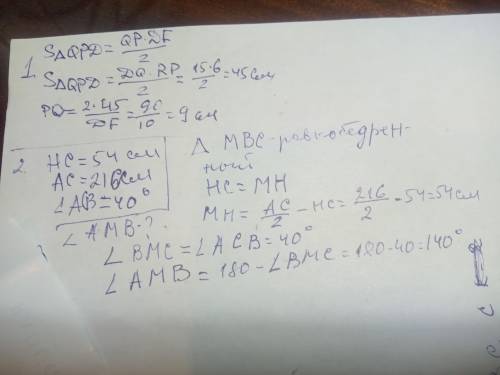 1. S△QPD = QP·DF/2
S△QPD = DQ·RP/2 = 15·6/2 = 45см
PQ = 2·45/DF = 90/10 = 9см
2. HC = 54см
AC = 216см
∠ACB = 40°
∠AMB-?
△ MBC-равнобедрен-
ный
HC = MH
MH = AC/2 - HC = 216/2 - 54 = 54см
∠BMC = ∠ACB = 40°
∠AMB = 180 - ∠BMC = 180-40 = 140°